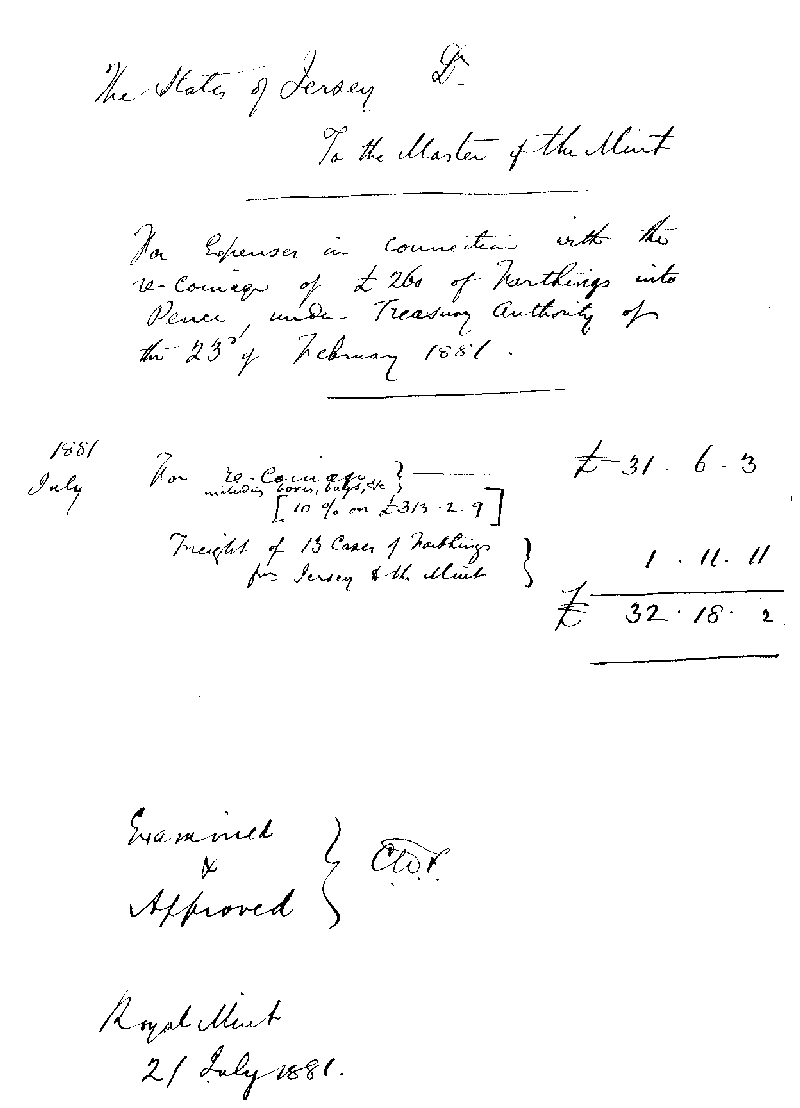 The States of Jersey Dr.
To the Master of the Mint
For Expenses in connection with the
re-Coinage of £260 of Farthings into
Pence, under Treasury Authority of
the 23d of February 1881.
1881
July For re-Coinage } £31 . 6 . 3
including boxes, bags, &c
[10 % on £313 . 2 . 9]
Freight of 13 Cases of Farthings
from Jersey to the Mint } 1 . 11 . 11
£ 32 . 18 . 2
Examined
&
Approved } C.W.F.
Royal Mint
21 July 1881.